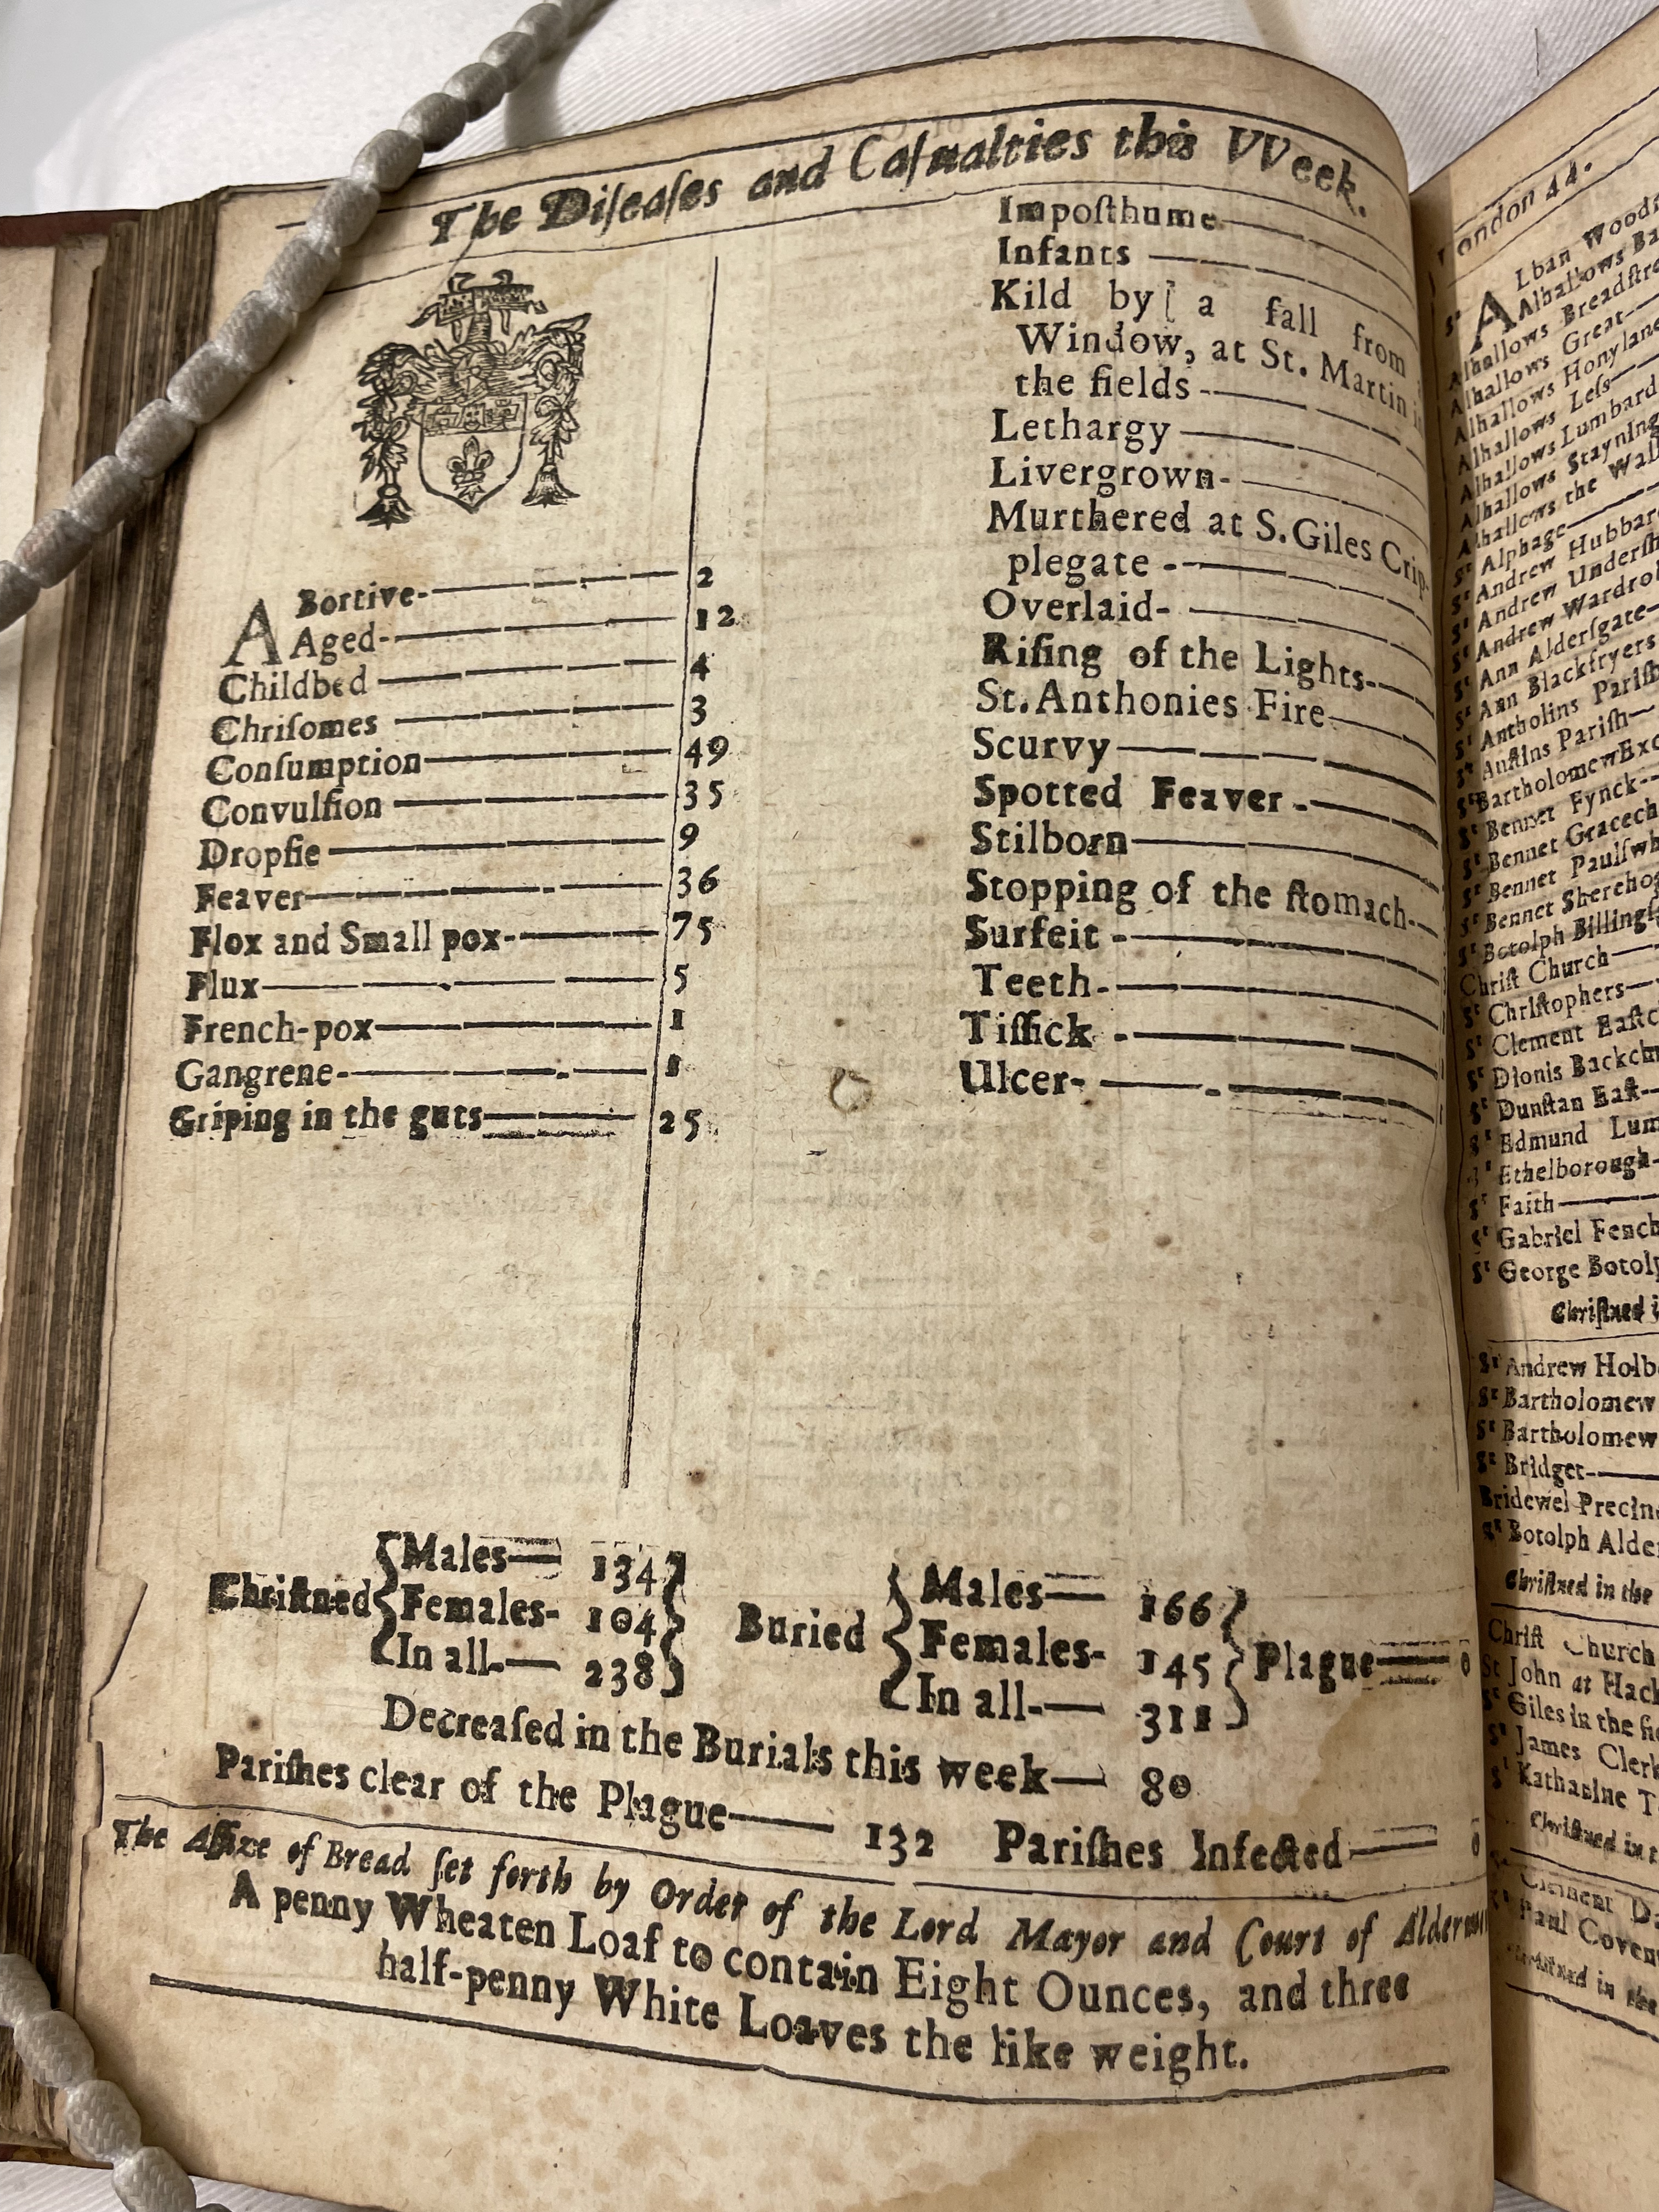 The Diſeaſes and Caſualties this VVeek.
ABortive- 2
Aged- 12
Childbed 4
Chriſomes 3
Conſumption 49
Convulſion 35
Dropſie 9
Feaver 36
Flox and Small pox- 75
Flux 5
French-pox 1
Gangrene- 1
Griping in the guts 25
Impoſthume
Infants
Kild by [ a fall from
Window, at St. Martin
the fields
Lethargy
Livergrown-
Murthered at S. Giles Crip-
plegate -
Overlaid-
Riſing of the Lights-
St. Anthonies Fire
Scurvy
Spotted Feaver -
Stilborn
Stopping of the ſtomach-
Surfeit -
Teeth-
Tiſſick -
Ulcer-
Chriſtned Males 134
Females- 104
In all- 238
Buried Males 166
Females- 145
In all- 311
Plague 0
Decreaſed in the Burials this week 80
Pariſhes clear of the Plague 132 Pariſhes Infected 0
The Aſſize of Bread ſet forth by Order of the Lord Mayor and Court of
A penny Wheaten Loaf to contain Eight Ounces, and three
half-penny White Loaves the like weight.
London 44.
St ALban
Alhallows
Alhallows
Alhallows Great
Alhallows
Alhallows Leſs
Alhallows
Alhallows Stayning
Alhallows the
St Alphage
St Andrew
St Andrew
St Andrew
St Ann Alderſgate
St Ann Blackfryers
St Antholins
St Auſtins Pariſh
St Bartholomew
St Bennet Fynck
St Bennet
St Bennet
St Bennet
St Botolph
Chriſt Church
St Chriſtophers
St Clement
St Dionis
St Dunſtan Eaſt
St Edmund
St Ethelborough
St Faith
St Gabriel
St George
Chriſtned
St Andrew
St Bartholomew
St Bartholomew
St Bridget
Bridewel
St Botolph
Chriſtned in the
Chriſt Church
St John at
St Giles in the
St James
St Katharine
Chriſtned in
St Clement
St Paul
in the